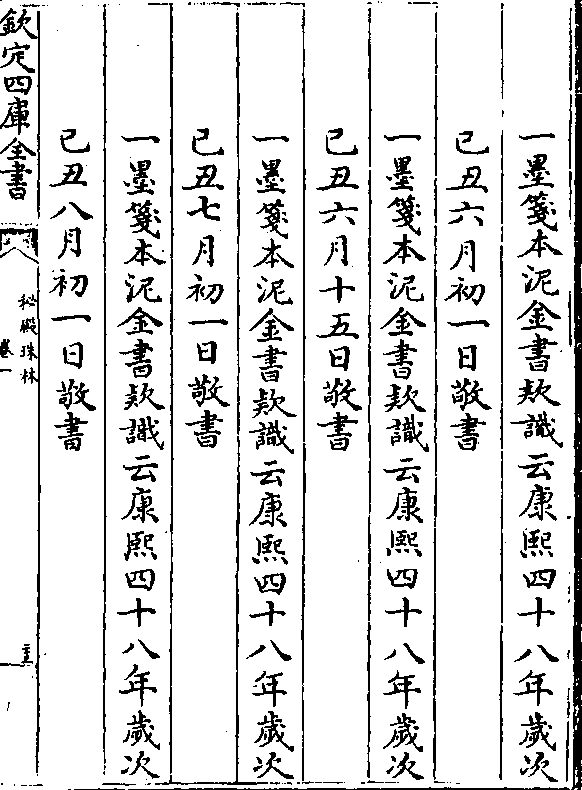 一墨箋本泥金書欵識云康熙四十八年歲次
己丑六月初一日敬書
一墨箋本泥金書欵識云康熙四十八年歲次
己丑六月十五日敬書
一墨箋本泥金書欵識云康熙四十八年歲次
己丑七月初一日敬書
一墨箋本泥金書欵識云康熙四十八年歲次
己丑八月初一日敬書
欽定四庫全書
秘殿珠林
卷一